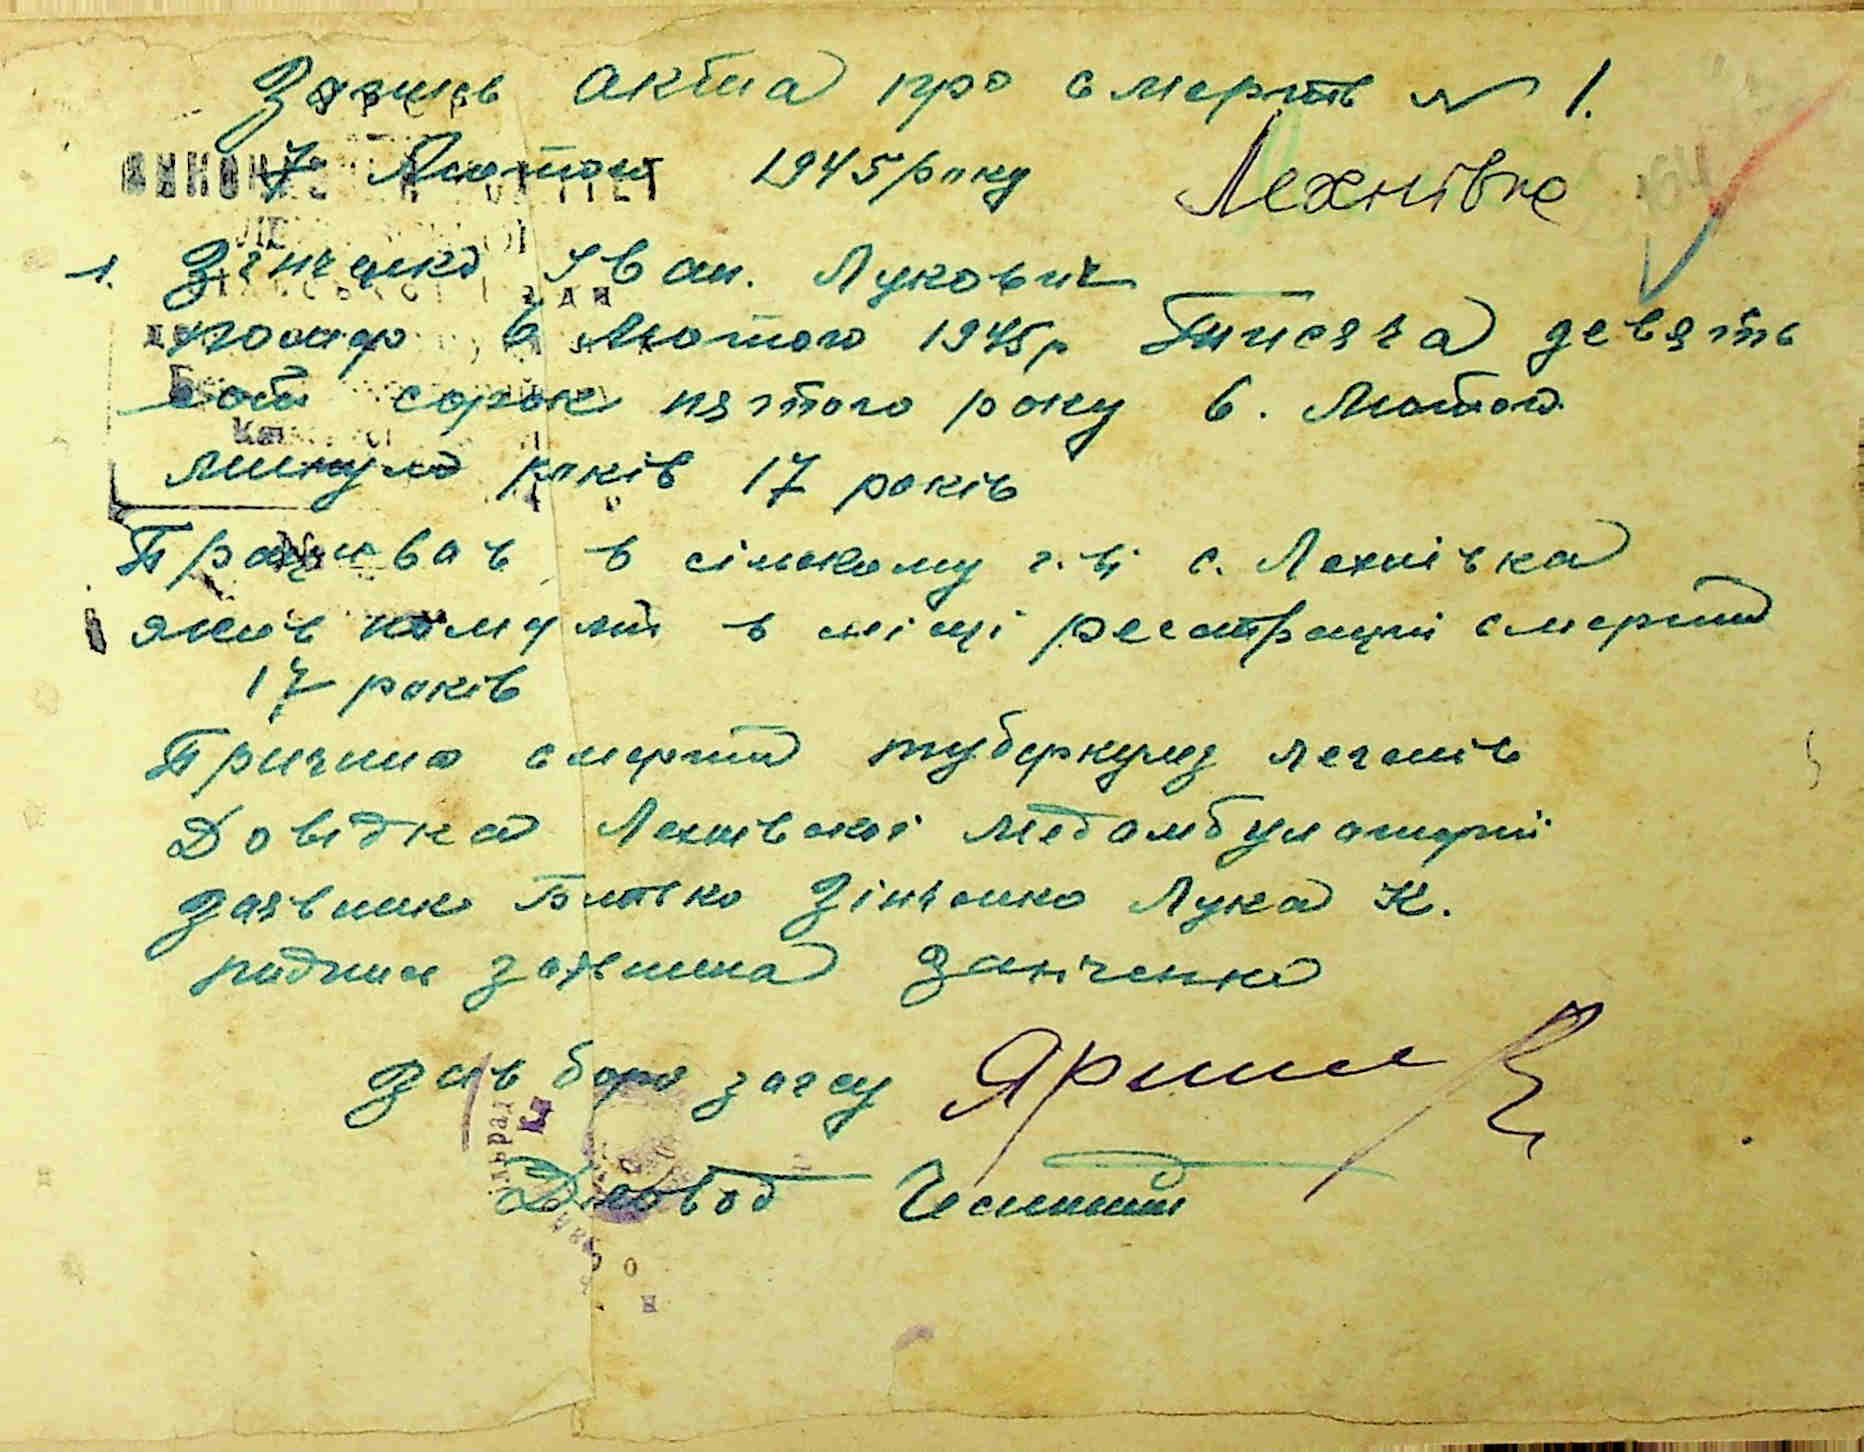 Запись акта про смерть № 1.
7 Лютого 1945 року Лехнівка
1. Зінченко Іван. Лукович
помер 6 Лютого 1945р Тисяча девять
сот сорок пятого року 6. Лютого
минуло років 17 років
Працював в сільскому г-ві с. Лехнівка
в місці регстрації смерти
17 років
Причина смерти туберкульз легенів
Довідка Лехнівської Медамбулаторії
заявник Батько Зінченко Лука К.
заявника Зінченко
Зав бюро загсу
Діловод